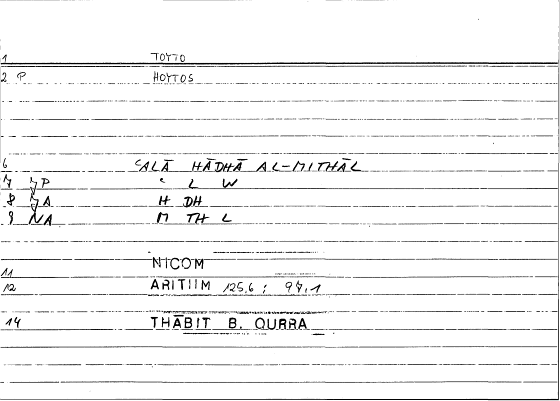 1 TOYTO
2 P HOYTOS
6 ʿALĀ HĀDHĀ AL-MITHĀL
7 P ʿ L W
8 A H DH
9 NA M TH L
NICOM
11
12 ARITIIM 125,6 ; 97,1
14 THĀBIT B. QURRA